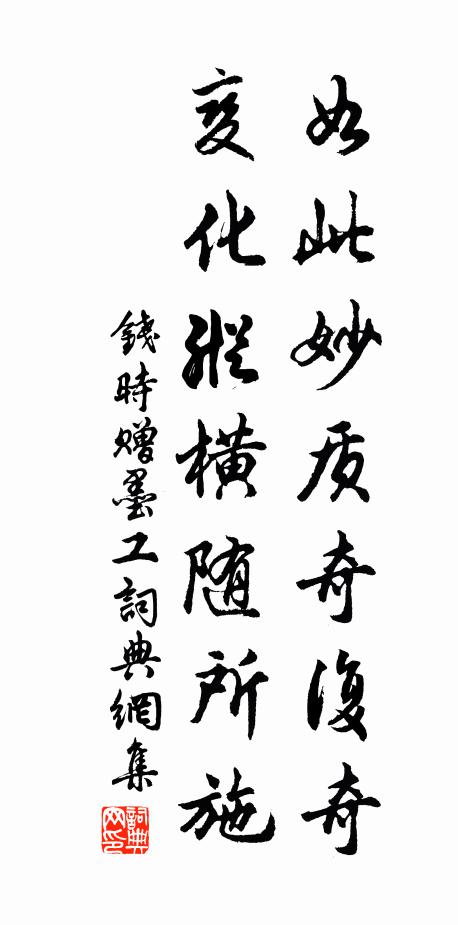 如此妙质奇復奇
变化縱橫随所施
錢時赠墨工詞典網集
詞典网印